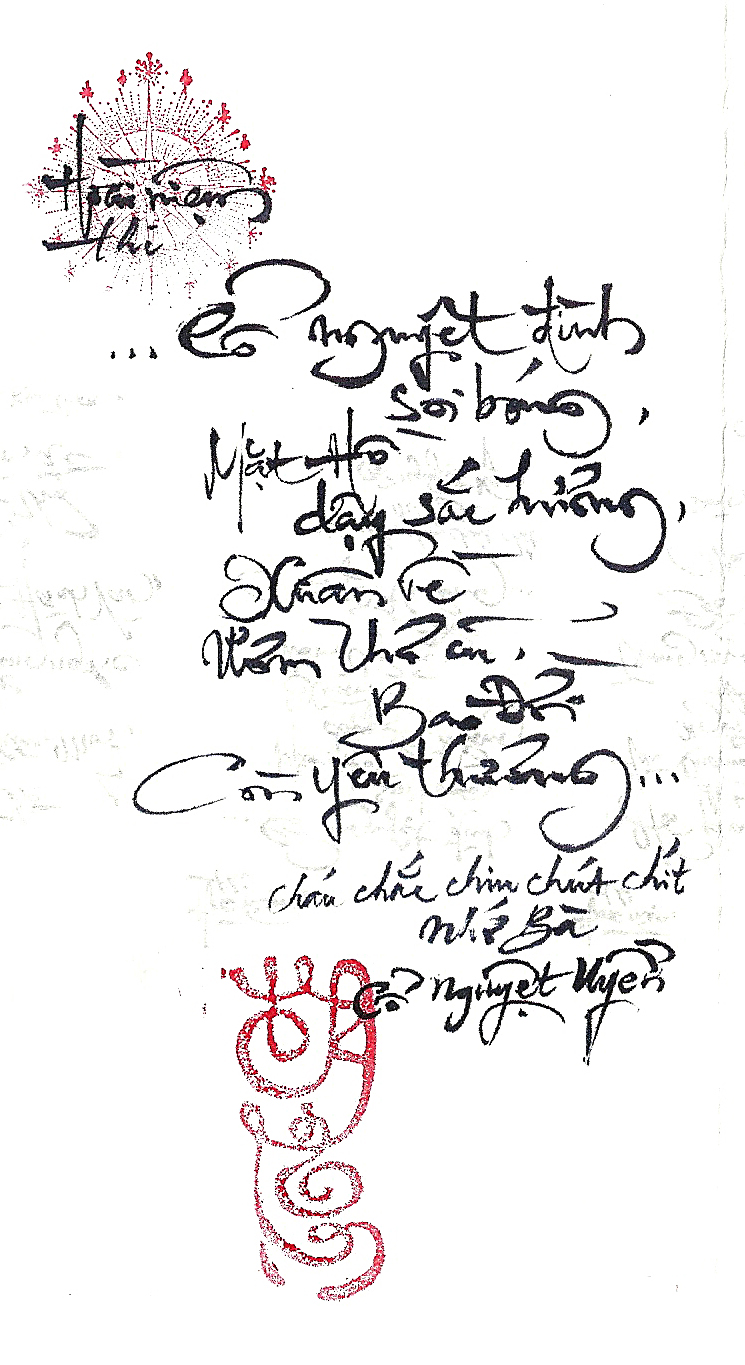 Hoài niệm
thi
... Cổ nguyệt đình
soi bóng,
Mặt Hồ
dậy sắc hương,
Xuân về
thơ ấn,
Bao Đời
Còn yêu thương...
cháu chắc chiu chút chít
nhớ Bà
Cổ Nguyệt Uyển